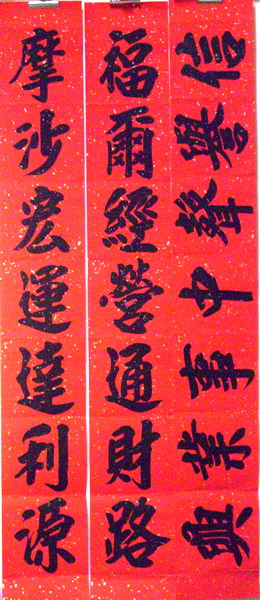 信譽聲中事業興
福爾經營通財路
摩沙宏運達利源